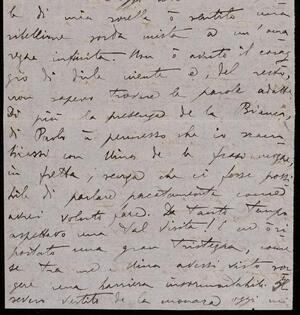 la di mia sorella ò sentito una
ribellione sorda mista a un'ama-
rezza infinita. Non ò avuto il corag-
gio di dirle niente e, del resto,
non sapevo trovare le parole adatte.
Di più la presenza de la Bianca,
di Paolo à permesso che io scam-
biassi con Dina de le frasi
in fretta, senza che ci fosse possi-
bile di parlare pacatamente come
avrei voluto fare. Da tanto tempo
aspettavo una tal visita! E ne ò ri-
portato una gran tristezza, come
se tra me e Dina avessi visto sor-
gere una barriera insormontabile. Il
severo vestito de la monaca oggi mi